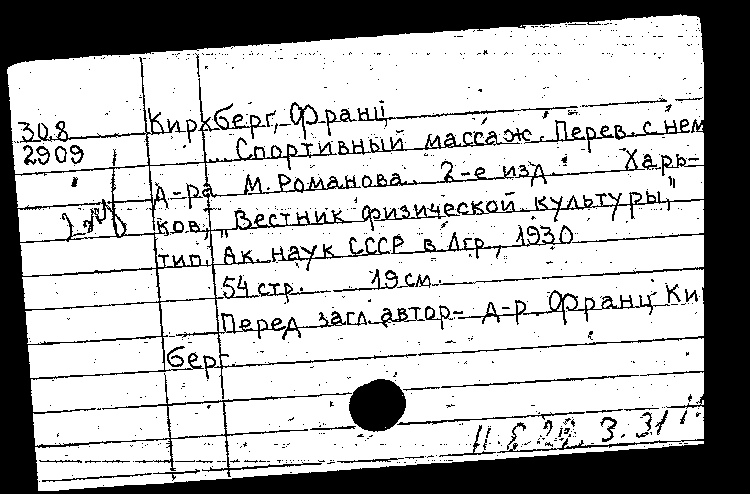 30.8
2909
Киркберг, Франц
... Спортивный массаж. Перев. с нем
д-ра М. Романова. 2-е изд. Харь-
ков, „Вестник физической культуры,"
тип. Ак. наук СССР в Лгр., 1930
54 стр. 19 см.
Перед загл. автор - д-р Франц Ки
берг.
29. 3. 31